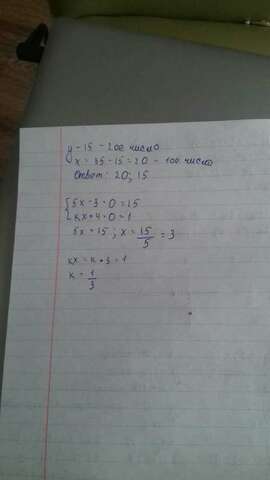 y - 15 - 2ое число
x = 35 - 15 = 20 - 1ое число
Ответ: 20; 15
{5x - 3 · 0 = 15
{kx + 4 · 0 = 1
5x = 15 ; x = 15/5 = 3
kx = k · 3 = 1
k = 1/3